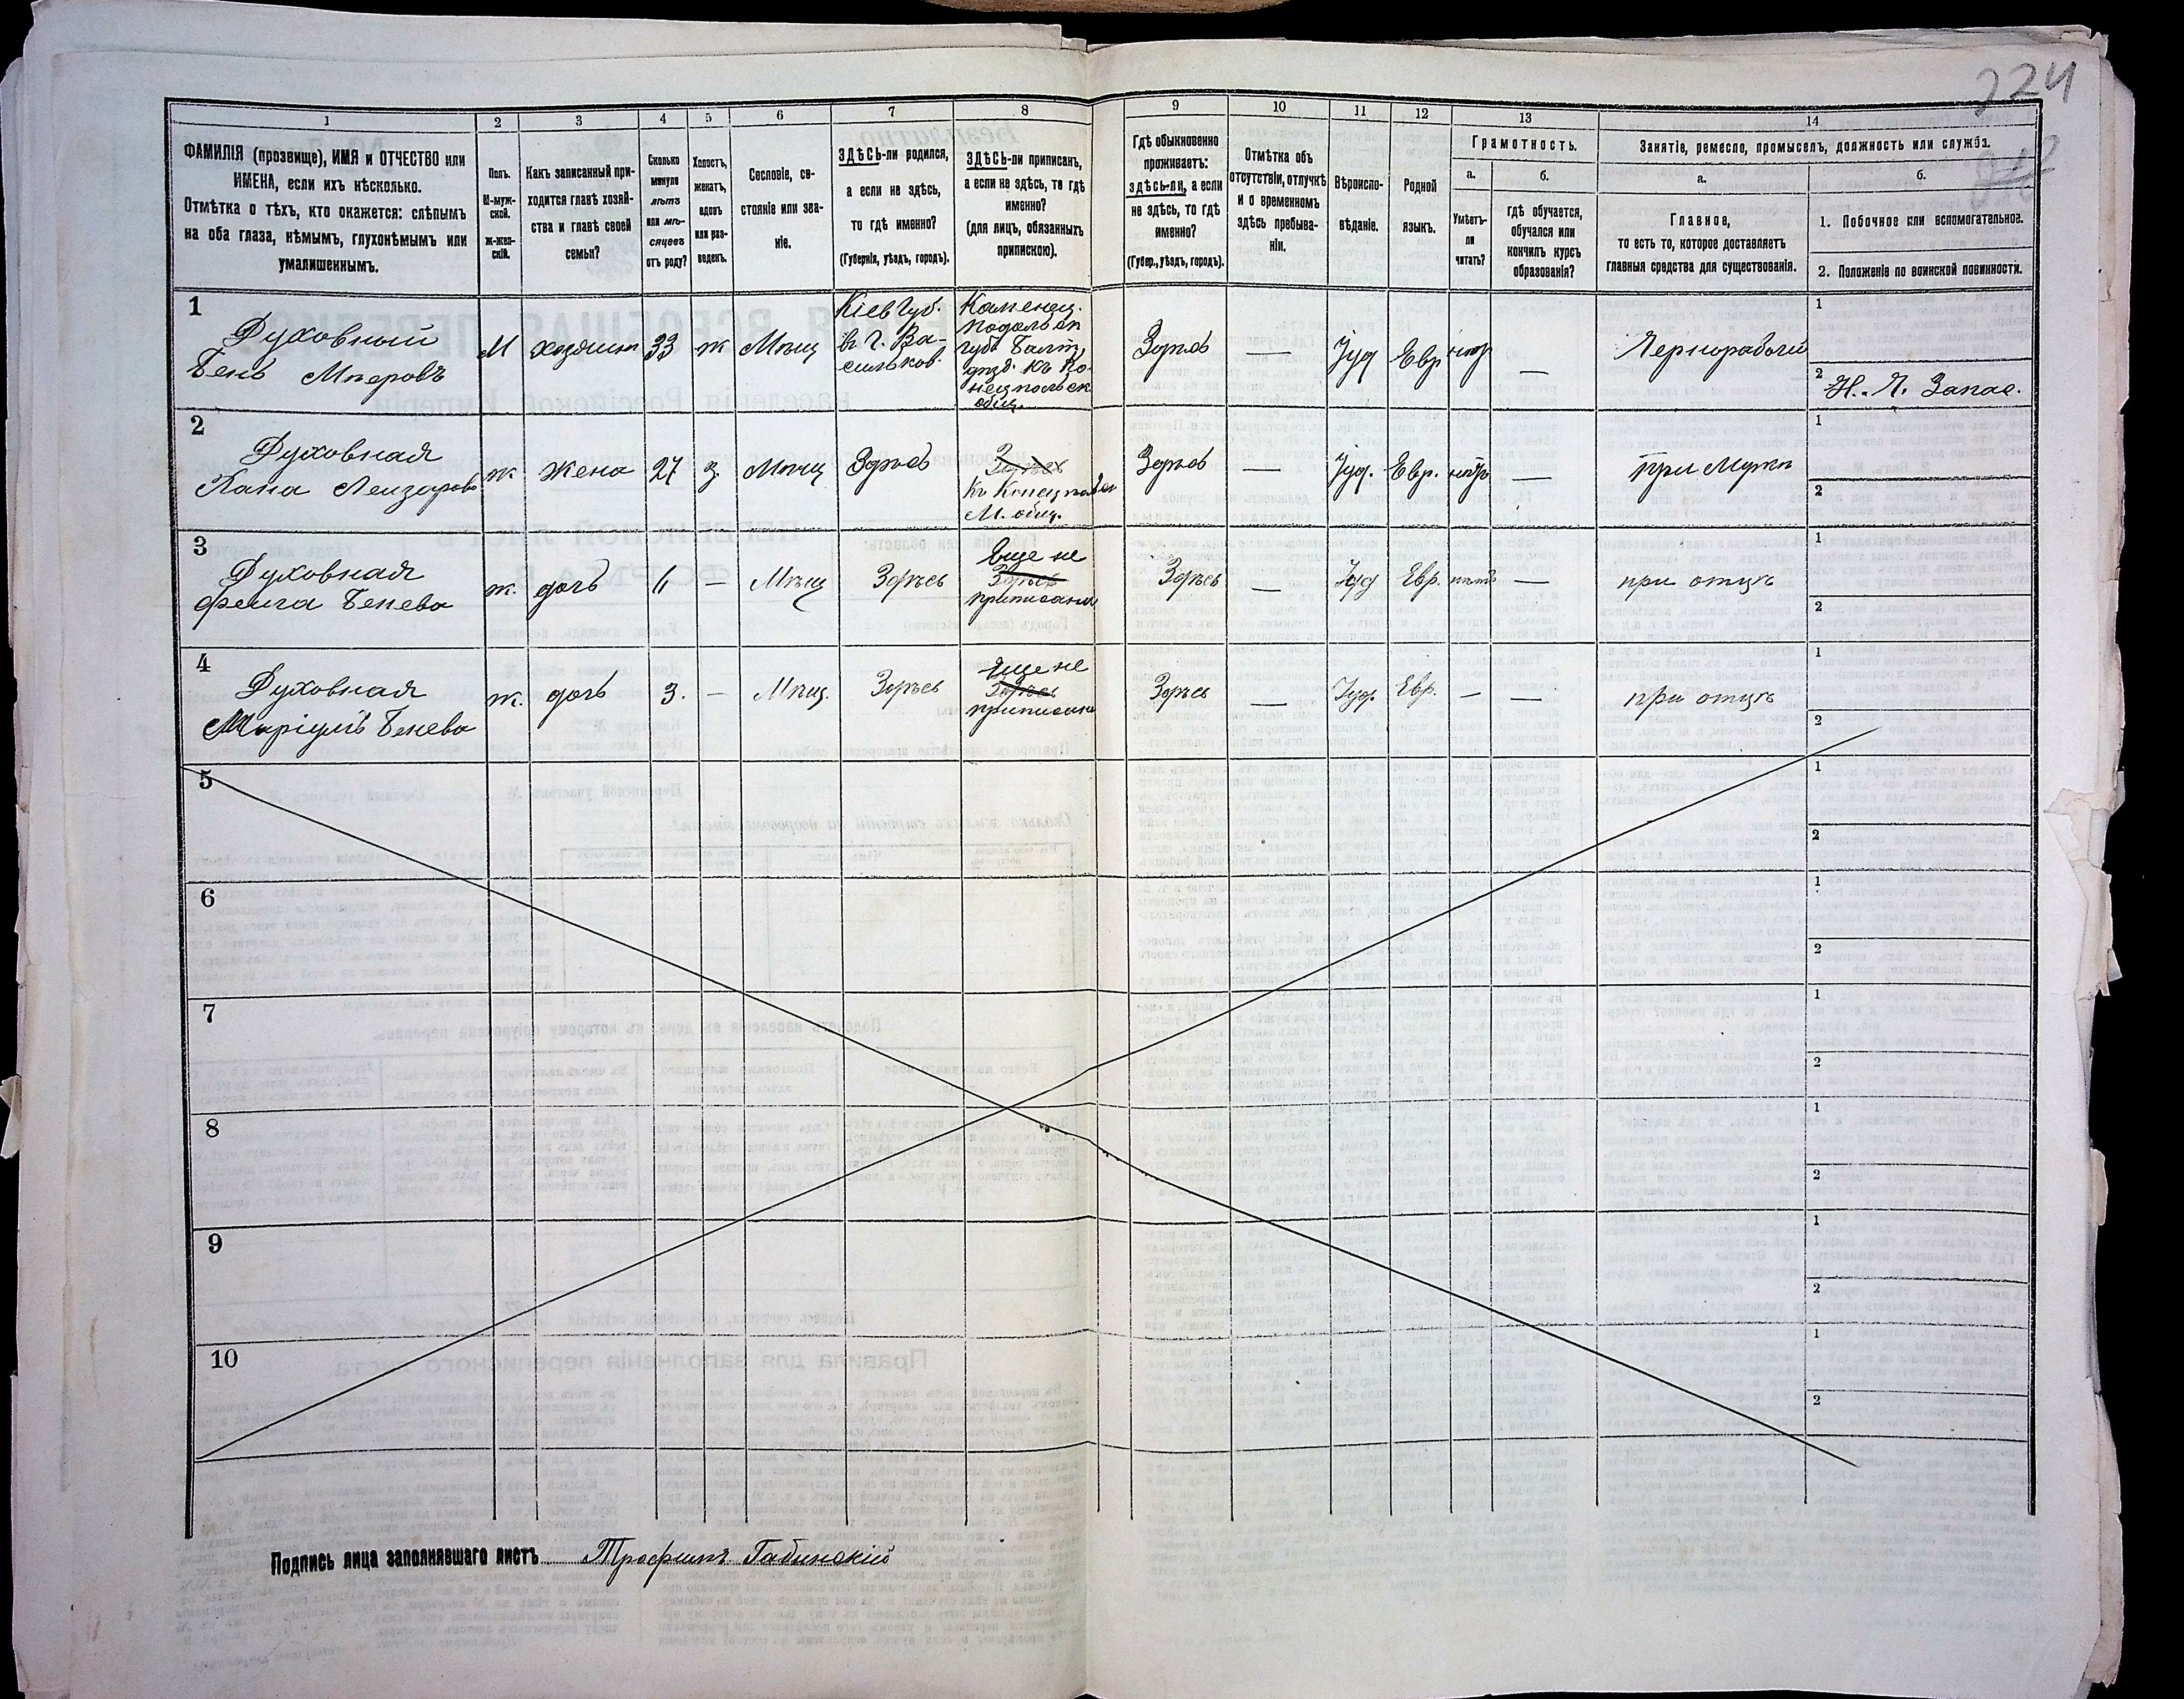 224
1
2
3
4
5
6
7
8
9
10
11
12
13
14
ФАМИЛІЯ (прозвище), ИМЯ и ОТЧЕСТВО или
ИМЕНА, если ихъ нѣсколько.
Отмѣтка о тѣхъ, кто окажется: слѣпымъ
на оба глаза, нѣмымъ, глухонѣмымъ или
умалишеннымъ.
Полъ.
М-муж-
ской.
ж-жен-
скій.
Какъ записанный при-
ходится главѣ хозяй-
ства и главѣ своей
семьи?
Сколько
минуло
лѣтъ
или мѣ-
сяцевъ
отъ роду?
Холостъ,
женатъ,
вдовъ
или раз-
веденъ.
Сословіе, со-
стояніе или зва-
ніе.
ЗДѢСЬ-ли родился,
а если не здѣсь,
то гдѣ именно?
(Губернія, уѣздъ, городъ).
ЗДѢСЬ-ли приписанъ,
а если не здѣсь, то гдѣ
именно?
(для лицъ, обязанныхъ
припискою).
Гдѣ обыкновенно
проживаетъ:
здѣсь-ли, а если
не здѣсь, то гдѣ
именно?
(Губер., уѣздъ, городъ).
Отмѣтка объ
отсутствіи, отлучкѣ
и о временномъ
здѣсь пребыва-
ніи.
Вѣроиспо-
вѣданіе.
Родной
языкъ.
Грамотность.
а.
Умѣетъ-
ли
читать?
б.
гдѣ обучается,
обучался или
кончилъ курсъ
образованія?
Занятіе, ремесло, промыселъ, должность или служба.
а.
Главное,
то есть то, которое доставляетъ
главныя средства для существованія.
б.
1. Побочное или вспомогательное.
2. Положеніе по воинской повинности.
1
Духовный
Бень Мееровъ
М
хозяинъ
33
ж
Мѣщ
Кіев Губ.
в г. Ва-
сильков.
Каменец.
Подольск
губ. Балт.
уѣзд. Къ Ко
нецпольск
общ.
Здѣсь
—
Іуд
Евр
нѣт
—
Чернорабочій
1
2
Н. Ч. Запас.
2
Духовная
Хана Лейзарова
ж
Жена
27
з
Мѣщ
Здѣсь
Здѣсь
Къ Конецпольск
М. общ.
Здѣсь
—
Іуд.
Евр.
нѣтъ
—
при Мужѣ
1
2
3
Духовная
Фейга Бенева
ж.
дочь
6
—
Мѣщ
Здѣсь
Еще не
Здѣсь
приписана
Здѣсь
—
Іуд
Евр.
нѣтъ
—
при отцѣ
1
2
4
Духовная
Маріумъ Бенева
ж.
дочь
3.
—
Мѣщ.
Здѣсь
Еще не
Здѣсь
приписана
Здѣсь
—
Іуд.
Евр.
—
—
при отцѣ
1
2
5
1
2
6
1
2
7
1
2
8
1
2
9
1
2
10
1
2
Подпись лица заполнявшаго листъ Трофимъ Габинскій